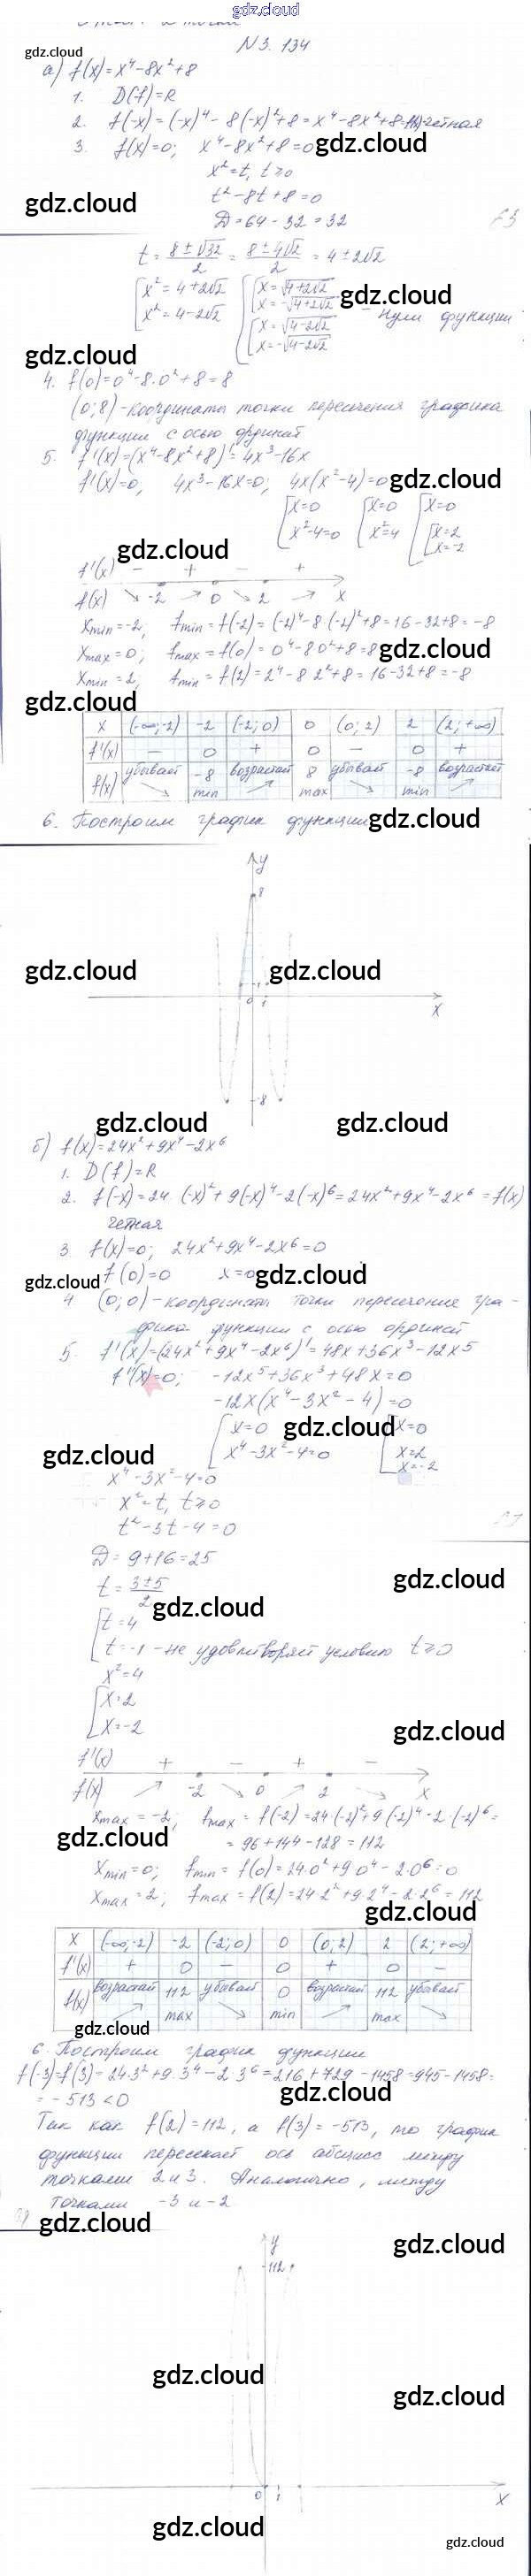 gdz.cloud
N 3. 134
gdz.cloud
а) f(x)=x⁴-8x²+8
1. D(f)=R
2. f(-x)=(-x)⁴-8(-x)²+8=x⁴-8x²+8=f(x)-четная
3. f(x)=0; x⁴-8x²+8=0
gdz.cloud
x²=t, t≥0
t²-8t+8=0
gdz.cloud
D=64-32=32
t=(8±√32)/2=(8±4√2)/2=4±2√2
[x²=4+2√2 [x=√(4+2√2)
x=-√(4+2√2) gdz.cloud
[x²=4-2√2 [x=√(4-2√2) - нули функции
x=-√(4-2√2)
gdz.cloud
4. f(0)=0⁴-8·0²+8=8
(0;8)-координаты точки пересечения графика
функции с осью ординат
5. f'(x)=(x⁴-8x²+8)'=4x³-16x
f'(x)=0; 4x³-16x=0; 4x(x²-4)=0
gdz.cloud
[x=0 [x=0 [x=0
x²-4=0 x²=4 [x=2
x=-2
gdz.cloud
f'(x) - + - +
f(x) -2 0 2 x
xmin=-2; fmin=f(-2)=(-2)⁴-8(-2)²+8=16-32+8=-8
xmax=0; fmax=f(0)=0⁴-8·0²+8=8
gdz.cloud
xmin=2; fmin=f(2)=2⁴-8·2²+8=16-32+8=-8
gdz.cloud
x (-∞;-2) -2 (-2;0) 0 (0;2) 2 (2;+∞)
f'(x) - 0 + 0 - 0 +
f(x) убывает -8 возрастает 8 убывает -8 возрастает
min max min
6. Построим график функции
gdz.cloud
y
8
gdz.cloud gdz.cloud
1
0 1
x
-8
gdz.cloud gdz.cloud
б) f(x)=24x²+9x⁴-2x⁶
1. D(f)=R
2. f(-x)=24·(-x)²+9(-x)⁴-2(-x)⁶=24x²+9x⁴-2x⁶=f(x)
четная
3. f(x)=0; 24x²+9x⁴-2x⁶=0
f(0)=0 x=0
gdz.cloud
gdz.cloud
4 (0;0)-координаты точки пересечения гра-
фика функции с осью ординат
5. f'(x)=(24x²+9x⁴-2x⁶)'=48x+36x³-12x⁵
f'(x)=0; -12x⁵+36x³+48x=0
-12x(x⁴-3x²-4)=0
[x=0 gdz.cloud [x=0
x⁴-3x²-4=0 x=2
gdz.cloud x=-2
x⁴-3x²-4=0
x²=t, t≥0
t²-3t-4=0
D=9+16=25
gdz.cloud
t=(3±5)/2
gdz.cloud
[t=4
t=-1-не удовлетворяет условию t≥0
x²=4
[x=2
x=-2
gdz.cloud
f'(x) + - + -
f(x) -2 0 2 x
xmax=-2; fmax=f(-2)=24(-2)²+9(-2)⁴-2·(-2)⁶=
gdz.cloud
=96+144-128=112
xmin=0; fmin=f(0)=24·0²+9·0⁴-2·0⁶=0
xmax=2; fmax=f(2)=24·2²+9·2⁴-2·2⁶=112
gdz.cloud
x (-∞;-2) -2 (-2;0) 0 (0;2) 2 (2;+∞)
f'(x) + 0 - 0 + 0 -
f(x) возрастает 112 убывает 0 возрастает 112 убывает
max min max
gdz.cloud
6. Построим график функции
f(-3)=f(3)=24·3²+9·3⁴-2·3⁶=216+729-1458=945-1458=
=-513<0
gdz.cloud
Так как f(2)=112, а f(3)=-513, то график
функции пересекает ось абсцисс между
точками 2 и 3. Аналогично, между
точками -3 и -2
gdz.cloud
gdz.cloud
y
112
gdz.cloud
gdz.cloud
0 1 x
gdz.cloud
gdz.cloud